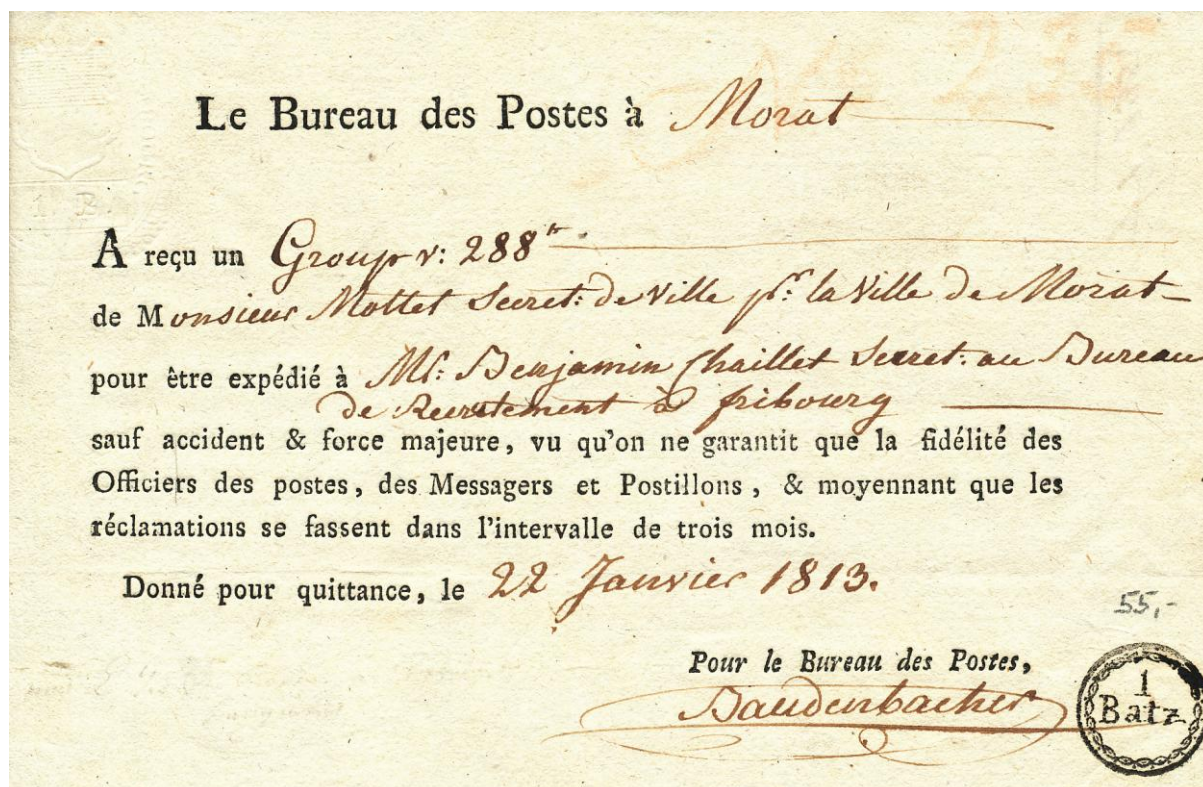 Le Bureau des Postes à Morat
A reçu un Group v: 288
de Monsieur Mottet Secret: de Ville pr: la Ville de Morat
pour être expédié à Mr: Benjamin Chaillet Secret: au Bureau
de Recrutement à fribourg
sauf accident & force majeure, vu qu'on ne garantit que la fidélité des
Officiers des postes, des Messagers et Postillons, & moyennant que les
réclamations se fassent dans l'intervalle de trois mois.
Donné pour quittance, le 22 Janvier 1813.
55,-
Pour le Bureau des Postes,
Baudenbacher
1
Batz